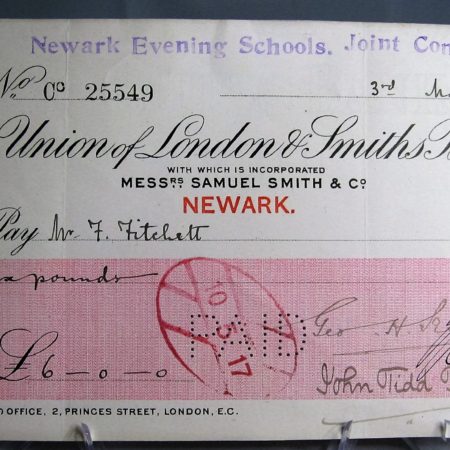 Newark Evening Schools. Joint Com
No Co 25549 3rd
Union of London & Smiths B
WITH WHICH IS INCORPORATED
MESSRS SAMUEL SMITH & Co
NEWARK.
Pay Mr F. Fitchett
pounds
10 5 17
PAID
Geo H
£6-0-0
John Tidd
OFFICE, 2, PRINCES STREET, LONDON, E.C.